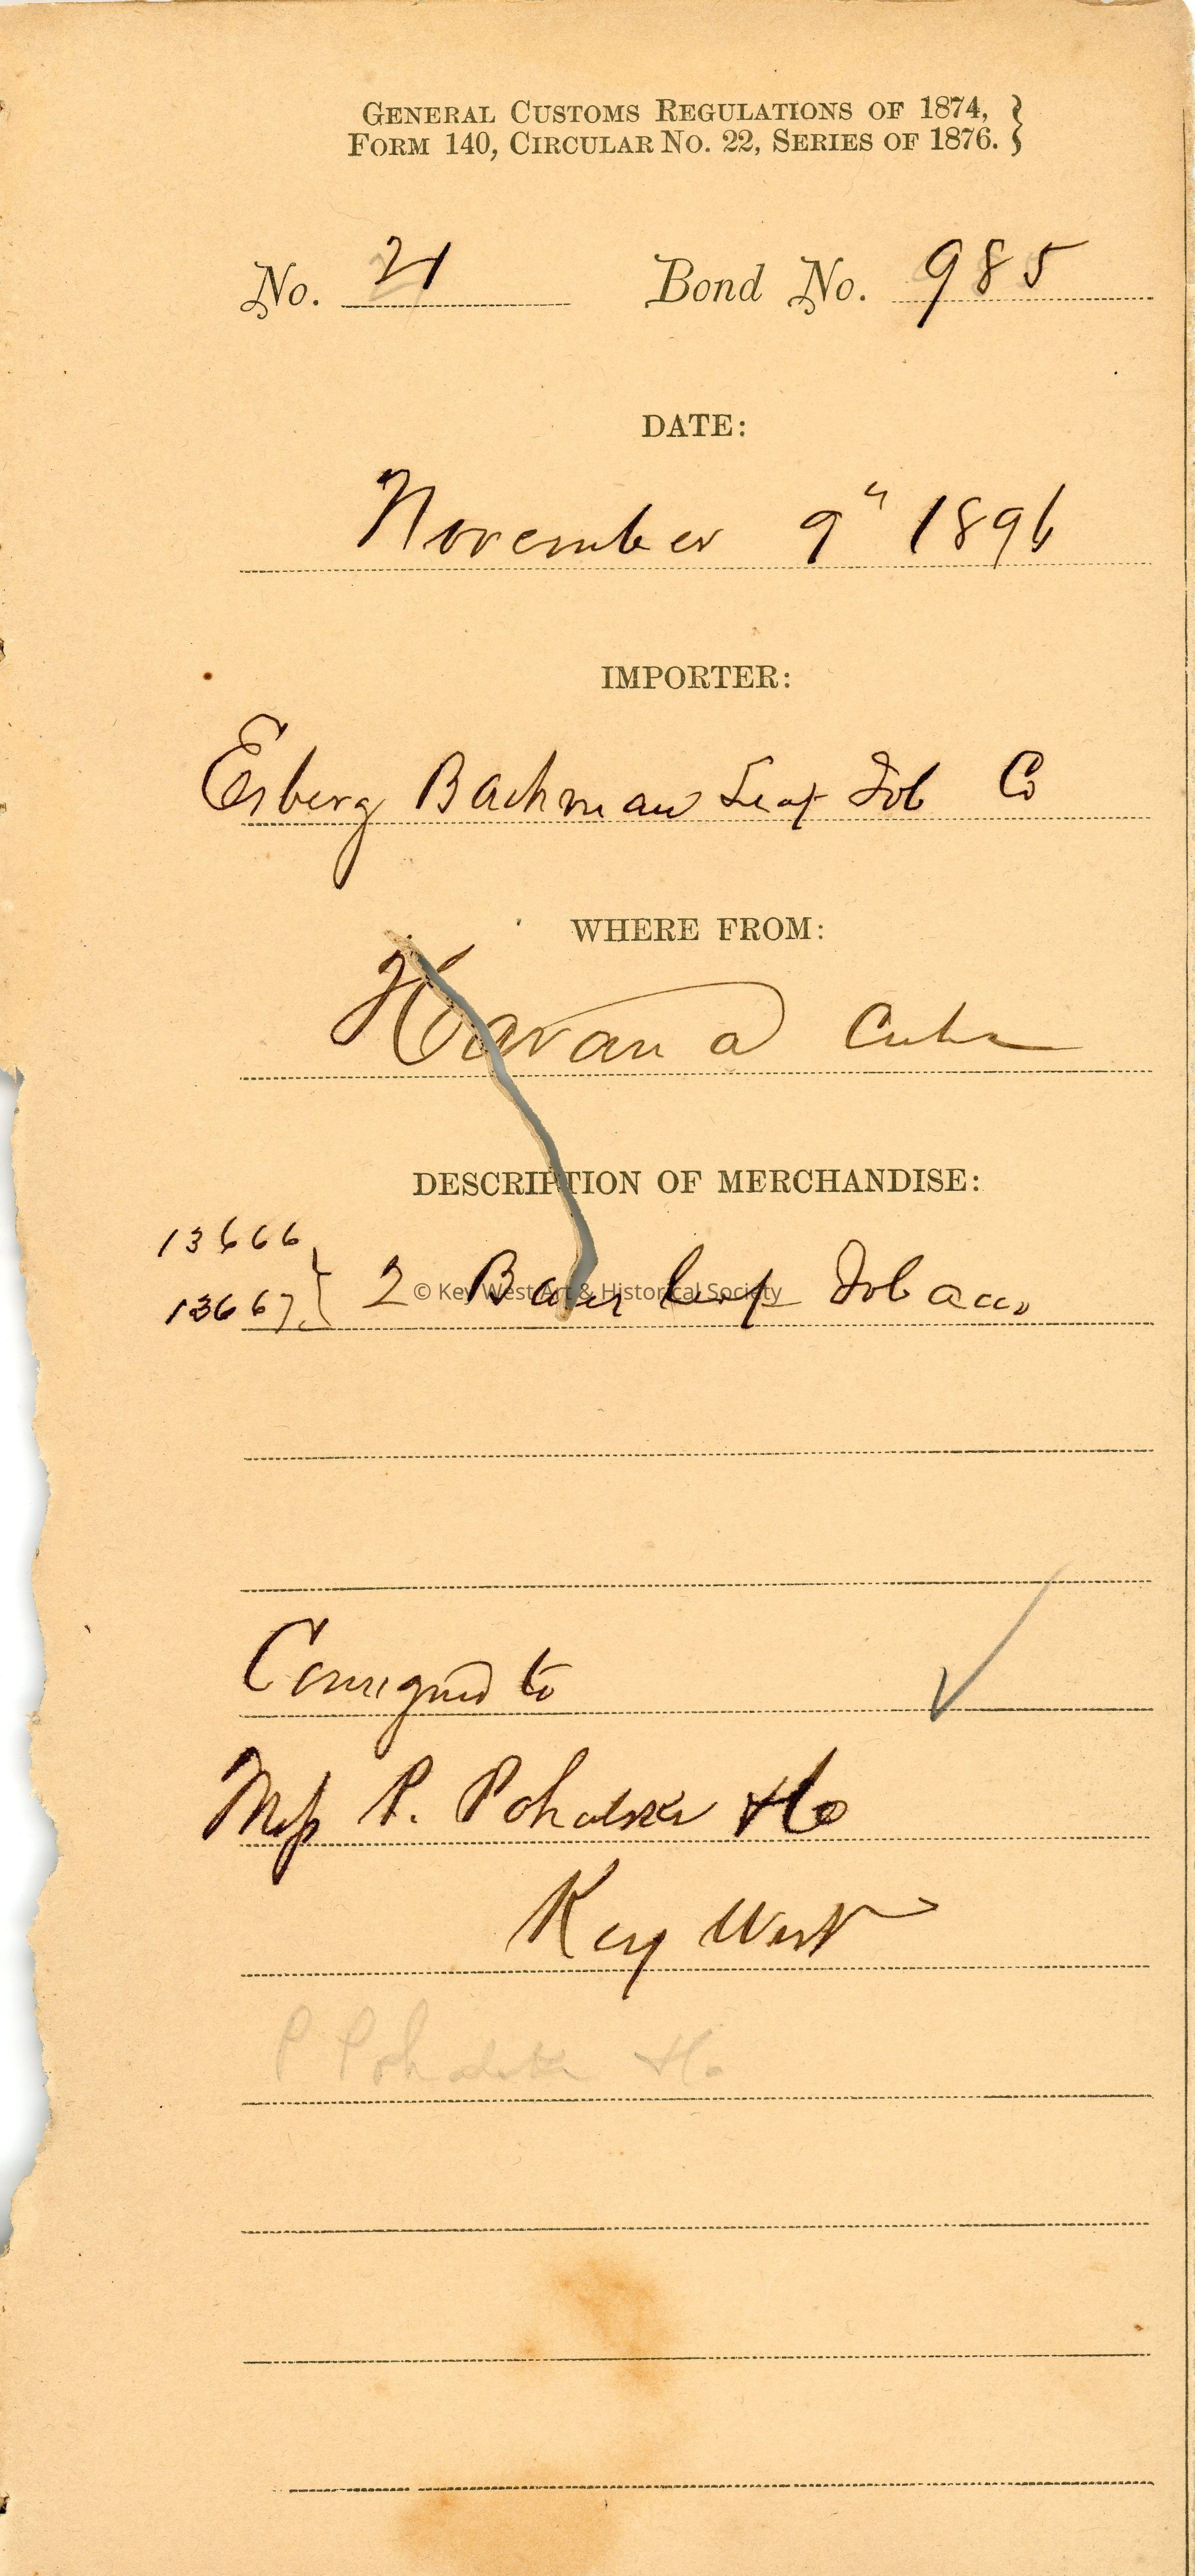 GENERAL CUSTOMS REGULATIONS OF 1874,
FORM 140, CIRCULAR NO. 22, SERIES OF 1876.
No. 21 Bond No. 985
DATE:
November 9" 1896
IMPORTER:
Esberg Bachman Leaf Tob Co
WHERE FROM:
Havana Cuba
DESCRIPTION OF MERCHANDISE:
13666
13667 2 Bales leaf Tobacco
© Key West Art & Historical Society
Consigned to
Mess P. Pohalski & Co
Key West
P Pohalski & Co